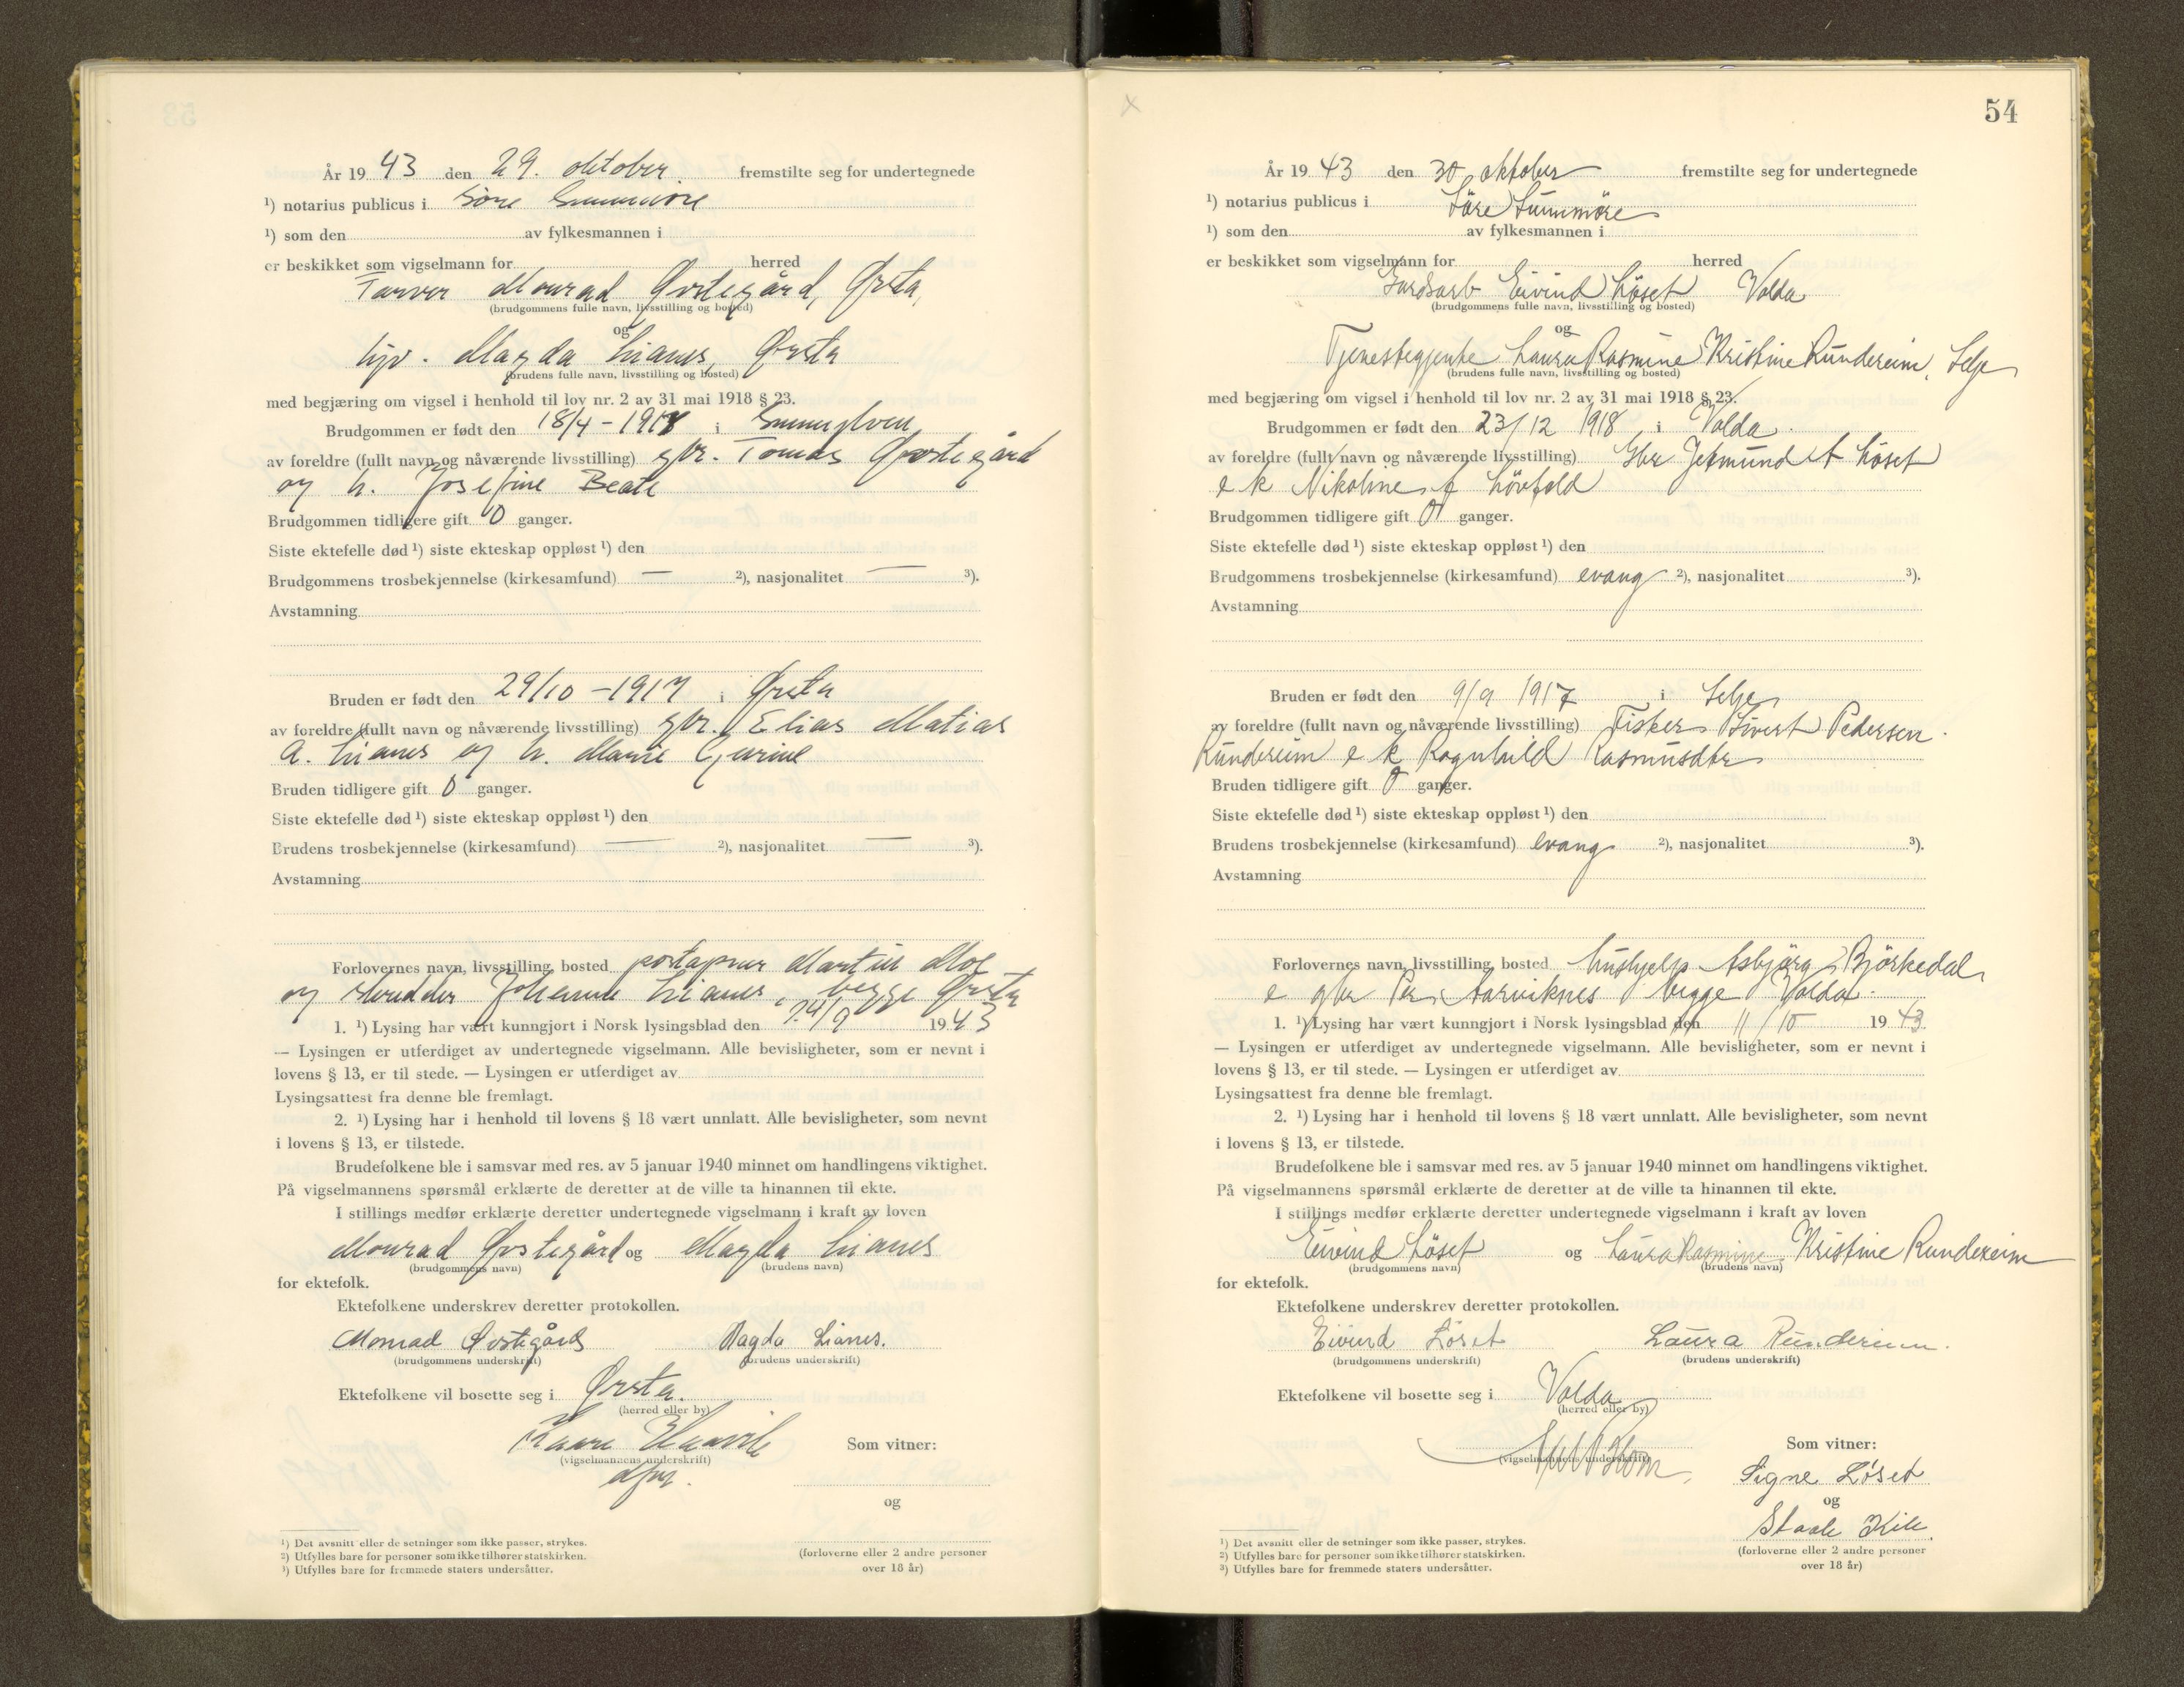 År 19 43 den 29. oktober fremstilte seg for undertegnede
¹) notarius publicus i Søre Sunnmøre
¹) som den av fylkesmannen i
er beskikket som vigselmann for herred
Farver Monrad Øvstegård, Ørsta,
(brudgommens fulle navn, livsstilling og bosted)
og
hjv. Magda Lianes, Ørsta
(brudens fulle navn, livsstilling og bosted)
med begjæring om vigsel i henhold til lov nr. 2 av 31 mai 1918 § 23.
Brudgommen er født den 18/4 - 1918 i Sunnylven
av foreldre (fullt navn og nåværende livsstilling) gbr. Tomas Øvstegård
og h. Josefine Beate
Brudgommen tidligere gift 0 ganger.
Siste ektefelle død ¹) siste ekteskap oppløst ¹) den
Brudgommens trosbekjennelse (kirkesamfund) — ²), nasjonalitet — ³).
Avstamning
Bruden er født den 29/10 - 1917 i Ørsta
av foreldre (fullt navn og nåværende livsstilling) gbr. Elias Matias
A. Lianes og h. Marie Gurine
Bruden tidligere gift 0 ganger.
Siste ektefelle død ¹) siste ekteskap oppløst ¹) den
Brudens trosbekjennelse (kirkesamfund) — ²), nasjonalitet — ³).
Avstamning
Forlovernes navn, livsstilling, bosted poståpner Martin Moe
og skredder Johannes Lianes, begge Ørsta
1. ¹) Lysing har vært kunngjort i Norsk lysingsblad den 24/9 19 43
— Lysingen er utferdiget av undertegnede vigselmann. Alle bevisligheter, som er nevnt i
lovens § 13, er til stede. — Lysingen er utferdiget av
Lysingsattest fra denne ble fremlagt.
2. ¹) Lysing har i henhold til lovens § 18 vært unnlatt. Alle bevisligheter, som nevnt
i lovens § 13, er tilstede.
Brudefolkene ble i samsvar med res. av 5 januar 1940 minnet om handlingens viktighet.
På vigselmannens spørsmål erklærte de deretter at de ville ta hinannen til ekte.
I stillings medfør erklærte deretter undertegnede vigselmann i kraft av loven
Monrad Øvstegård og Magda Lianes
(brudgommens navn) (brudens navn)
for ektefolk.
Ektefolkene underskrev deretter protokollen.
Monrad Øvstegård Magda Lianes.
(brudgommens underskrift) (brudens underskrift)
Ektefolkene vil bosette seg i Ørsta.
(herred eller by)
Kaare Haavik Som vitner:
(vigselmannens underskrift)
dfm.
og
¹) Det avsnitt eller de setninger som ikke passer, strykes.
²) Utfylles bare for personer som ikke tilhører statskirken.
³) Utfylles bare for fremmede staters undersåtter.
(forloverne eller 2 andre personer
over 18 år)
54
År 19 43 den 30 oktober fremstilte seg for undertegnede
¹) notarius publicus i Söre Sunnmöre
¹) som den av fylkesmannen i
er beskikket som vigselmann for herred
Gardsarb Eivind Löset Volda
(brudgommens fulle navn, livsstilling og bosted)
og
Tjenestegjente Laura Rasmine Kristine Rundereim, Selje
(brudens fulle navn, livsstilling og bosted)
med begjæring om vigsel i henhold til lov nr. 2 av 31 mai 1918 § 23.
Brudgommen er født den 23/12 1918 i Volda
av foreldre (fullt navn og nåværende livsstilling) Gbr Jetmund A Löset
e k Nikoline f Lövfold
Brudgommen tidligere gift 0 ganger.
Siste ektefelle død ¹) siste ekteskap oppløst ¹) den
Brudgommens trosbekjennelse (kirkesamfund) evang ²), nasjonalitet ³).
Avstamning
Bruden er født den 9/9 1917 i Selje
av foreldre (fullt navn og nåværende livsstilling) Fisker Sivert Pedersen
Rundereim e k Ragnhild Rasmusdtr
Bruden tidligere gift 0 ganger.
Siste ektefelle død ¹) siste ekteskap oppløst ¹) den
Brudens trosbekjennelse (kirkesamfund) evang ²), nasjonalitet ³).
Avstamning
Forlovernes navn, livsstilling, bosted hushjelp Asbjörg Björkedal
e gbr Per Aarviknes begge Volda
1. ¹) Lysing har vært kunngjort i Norsk lysingsblad den 11/10 19 43
— Lysingen er utferdiget av undertegnede vigselmann. Alle bevisligheter, som er nevnt i
lovens § 13, er til stede. — Lysingen er utferdiget av
Lysingsattest fra denne ble fremlagt.
2. ¹) Lysing har i henhold til lovens § 18 vært unnlatt. Alle bevisligheter, som nevnt
i lovens § 13, er tilstede.
Brudefolkene ble i samsvar med res. av 5 januar 1940 minnet om handlingens viktighet.
På vigselmannens spørsmål erklærte de deretter at de ville ta hinannen til ekte.
I stillings medfør erklærte deretter undertegnede vigselmann i kraft av loven
Eivind Löset og Laura Rasmine Kristine Rundereim
(brudgommens navn) (brudens navn)
for ektefolk.
Ektefolkene underskrev deretter protokollen.
Eivind Löset Laura Rundereim.
(brudgommens underskrift) (brudens underskrift)
Ektefolkene vil bosette seg i Volda
(herred eller by)
Som vitner:
(vigselmannens underskrift)
Signe Löset
og
Staale Kile
¹) Det avsnitt eller de setninger som ikke passer, strykes.
²) Utfylles bare for personer som ikke tilhører statskirken.
³) Utfylles bare for fremmede staters undersåtter.
(forloverne eller 2 andre personer
over 18 år)